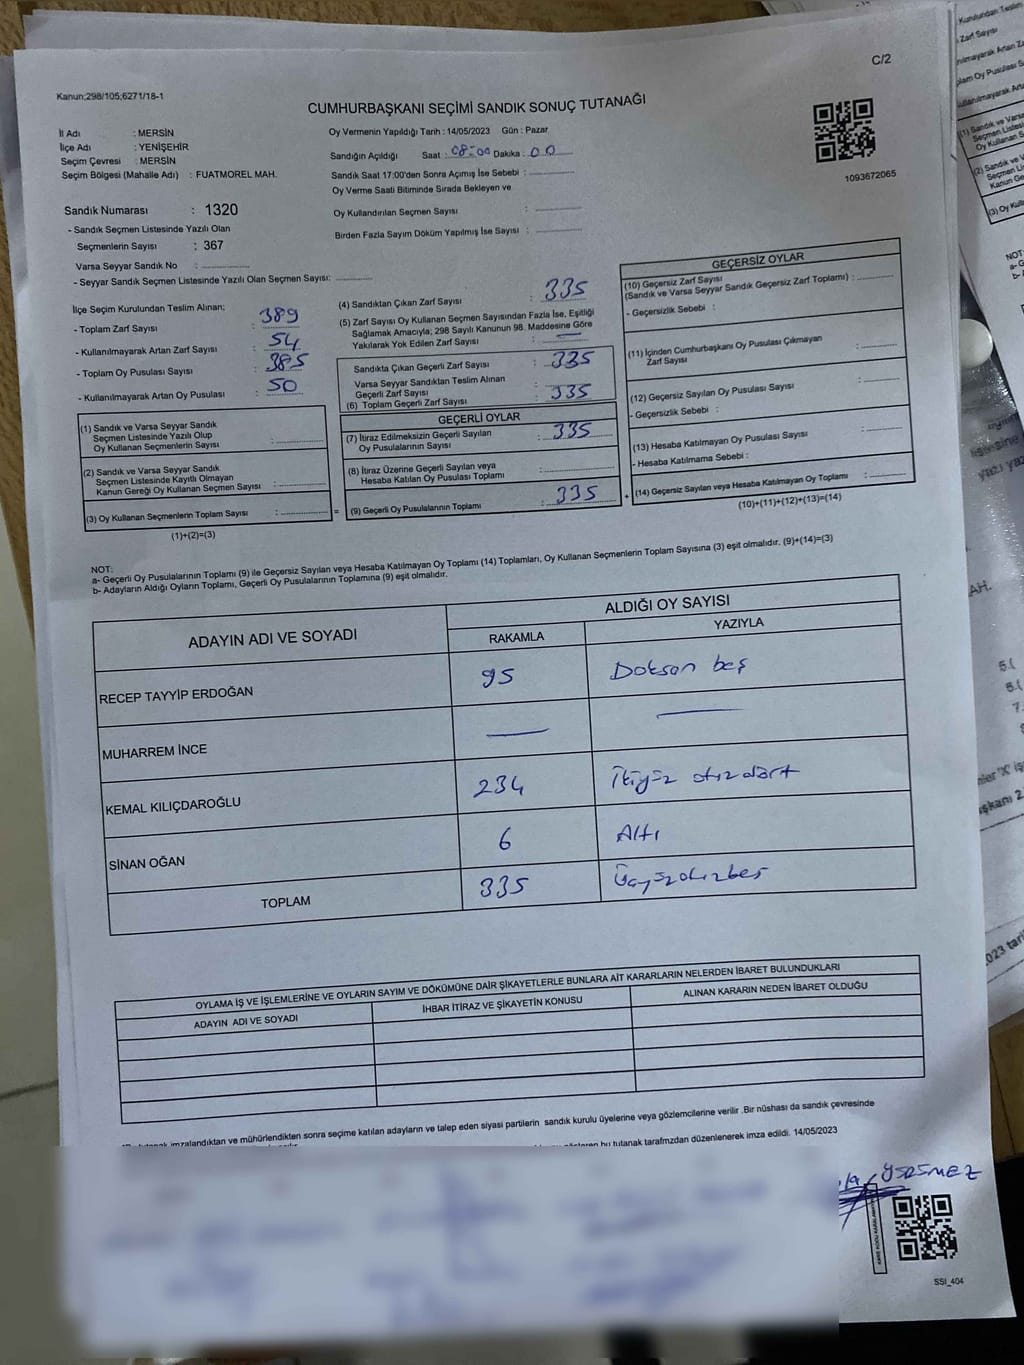 C/2
Kanun;298/105;6271/18-1
CUMHURBAŞKANI SEÇİMİ SANDIK SONUÇ TUTANAĞI
İl Adı : MERSİN
İlçe Adı : YENİŞEHİR
Seçim Çevresi : MERSİN
Seçim Bölgesi (Mahalle Adı) : FUATMOREL MAH.
Oy Vermenin Yapıldığı Tarih : 14/05/2023 Gün : Pazar
Sandığın Açıldığı Saat : 08:00 Dakika : 00
Sandık Saat 17:00'den Sonra Açımış İse Sebebi :
Oy Verme Saati Bitiminde Sırada Bekleyen ve
Oy Kullandırılan Seçmen Sayısı :
Birden Fazla Sayım Döküm Yapılmış İse Sayısı :
1093672065
Sandık Numarası : 1320
- Sandık Seçmen Listesinde Yazılı Olan
Seçmenlerin Sayısı : 367
Varsa Seyyar Sandık No :
- Seyyar Sandık Seçmen Listesinde Yazılı Olan Seçmen Sayısı:
İlçe Seçim Kurulundan Teslim Alınan;
- Toplam Zarf Sayısı : 389
- Kullanılmayarak Artan Zarf Sayısı : 54
- Toplam Oy Pusulası Sayısı : 385
- Kullanılmayarak Artan Oy Pusulası : 50
(1) Sandık ve Varsa Seyyar Sandık
Seçmen Listesinde Yazılı Olup
Oy Kullanan Seçmenlerin Sayısı :
(2) Sandık ve Varsa Seyyar Sandık
Seçmen Listesinde Kayıtlı Olmayan
Kanun Gereği Oy Kullanan Seçmen Sayısı :
(3) Oy Kullanan Seçmenlerin Toplam Sayısı :
(1)+(2)=(3)
(4) Sandıktan Çıkan Zarf Sayısı : 335
(5) Zarf Sayısı Oy Kullanan Seçmen Sayısından Fazla İse, Eşitliği
Sağlamak Amacıyla; 298 Sayılı Kanunun 98. Maddesine Göre
Yakılarak Yok Edilen Zarf Sayısı : —
Sandıkta Çıkan Geçerli Zarf Sayısı : 335
Varsa Seyyar Sandıktan Teslim Alınan
Geçerli Zarf Sayısı :
(6) Toplam Geçerli Zarf Sayısı : 335
GEÇERLİ OYLAR
(7) İtiraz Edilmeksizin Geçerli Sayılan
Oy Pusulalarının Sayısı : 335
(8) İtiraz Üzerine Geçerli Sayılan veya
Hesaba Katılan Oy Pusulası Toplamı :
= (9) Geçerli Oy Pusulalarının Toplamı : 335
GEÇERSİZ OYLAR
(10) Geçersiz Zarf Sayısı
(Sandık ve Varsa Seyyar Sandık Geçersiz Zarf Toplamı) :
- Geçersizlik Sebebi :
(11) İçinden Cumhurbaşkanı Oy Pusulası Çıkmayan
Zarf Sayısı :
(12) Geçersiz Sayılan Oy Pusulası Sayısı :
- Geçersizlik Sebebi :
(13) Hesaba Katılmayan Oy Pusulası Sayısı :
- Hesaba Katılmama Sebebi :
+ (14) Geçersiz Sayılan veya Hesaba Katılmayan Oy Toplamı :
(10)+(11)+(12)+(13)=(14)
NOT:
a- Geçerli Oy Pusulalarının Toplamı (9) ile Geçersiz Sayılan veya Hesaba Katılmayan Oy Toplamı (14) Toplamları, Oy Kullanan Seçmenlerin Toplam Sayısına (3) eşit olmalıdır. (9)+(14)=(3)
b- Adayların Aldığı Oyların Toplamı, Geçerli Oy Pusulalarının Toplamına (9) eşit olmalıdır.
ADAYIN ADI VE SOYADI
ALDIĞI OY SAYISI
RAKAMLA YAZIYLA
RECEP TAYYİP ERDOĞAN 95 Doksan beş
MUHARREM İNCE — —
KEMAL KILIÇDAROĞLU 234 İkiyüz otuzdört
SİNAN OĞAN 6 Altı
TOPLAM 335 Üçyüzotuzbeş
OYLAMA İŞ VE İŞLEMLERİNE VE OYLARIN SAYIM VE DÖKÜMÜNE DAİR ŞİKAYETLERLE BUNLARA AİT KARARLARIN NELERDEN İBARET BULUNDUKLARI
ADAYIN ADI VE SOYADI
İHBAR İTİRAZ VE ŞİKAYETİN KONUSU
ALINAN KARARIN NEDEN İBARET OLDUĞU
tutanak imzalandıktan ve mühürlendikten sonra seçime katılan adayların ve talep eden siyasi partilerin sandık kurulu üyelerine veya gözlemcilerine verilir .Bir nüshası da sandık çevresinde
gösteren bu tutanak tarafmzdan düzenlenerek imza edildi. 14/05/2023
SSI_404